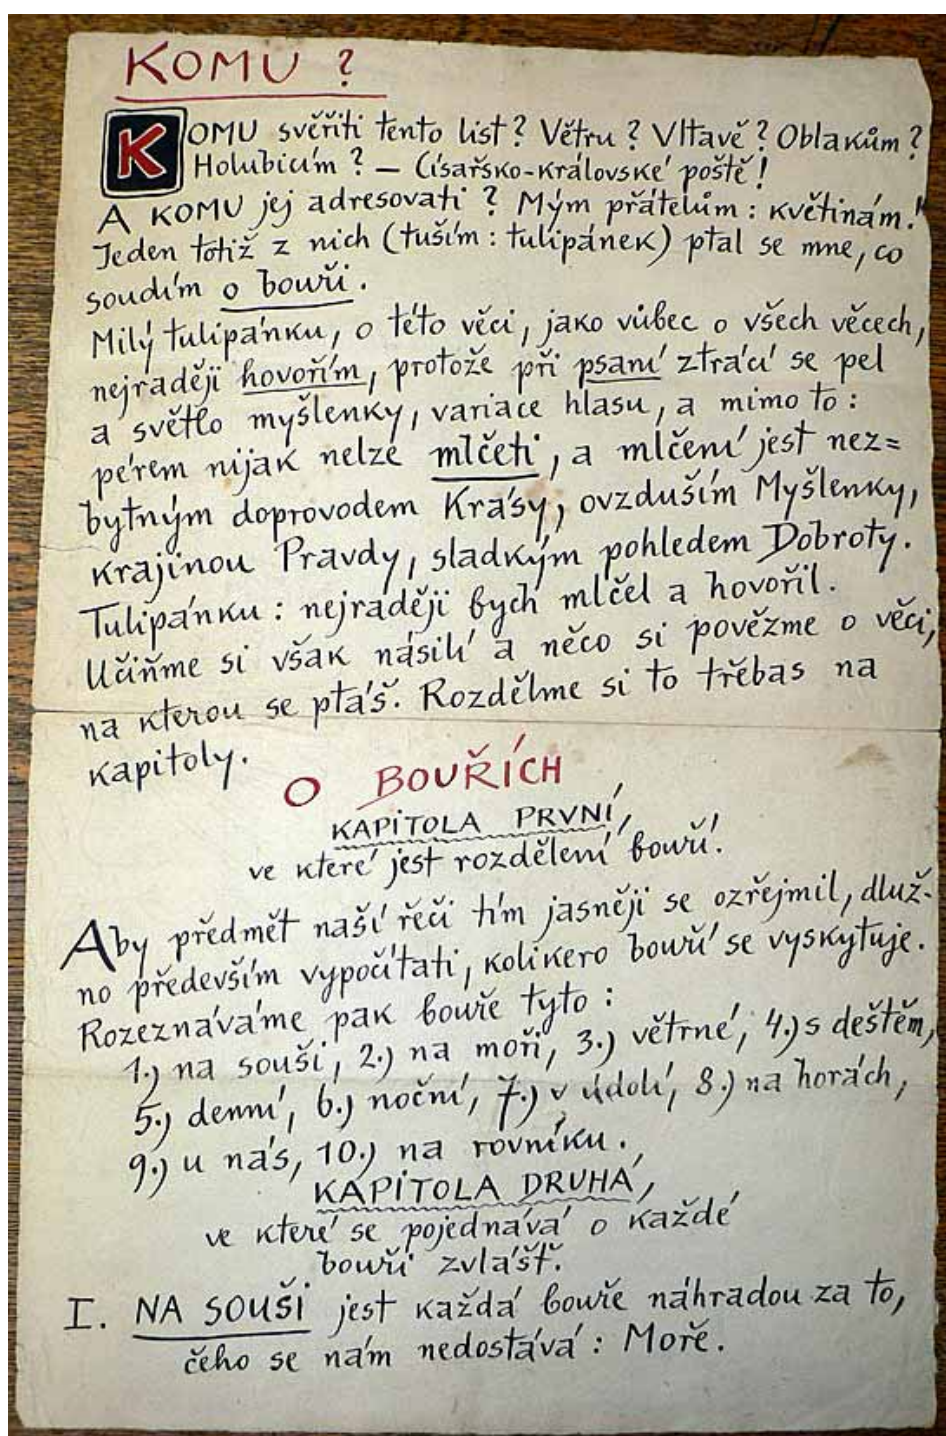 KOMU ?
KOMU svěřiti tento list? Větru? Vltavě? Oblakům?
Holubicím? — Císařsko-královské poště!
A KOMU jej adresovati? Mým přátelům: květinám!
Jeden totiž z nich (tuším: tulipánek) ptal se mne, co
soudím o bouři.
Milý tulipánku, o této věci, jako vůbec o všech věcech,
nejraději hovořím, protože při psaní ztrácí se pel
a světlo myšlenky, variace hlasu, a mimo to:
pérem nijak nelze mlčeti, a mlčení jest nez=
bytným doprovodem Krásy, ovzduším Myšlenky,
krajinou Pravdy, sladkým pohledem Dobroty.
Tulipánku: nejraději bych mlčel a hovořil.
Učiňme si však násilí a něco si povězme o věci,
na kterou se ptáš. Rozdělme si to třebas na
kapitoly.
O BOUŘÍCH
KAPITOLA PRVNÍ,
ve které jest rozdělení bouří.
Aby předmět naší řeči tím jasněji se ozřejmil, dluž-
no především vypočítati, kolikero bouří se vyskytuje.
Rozeznáváme pak bouře tyto:
1.) na souši, 2.) na moři, 3.) větrné, 4.) s deštěm,
5.) denní, 6.) noční, 7.) v údolí, 8.) na horách,
9.) u nás, 10.) na rovníku.
KAPITOLA DRUHÁ,
ve které se pojednává o každé
bouři zvlášť.
I. NA SOUŠI jest každá bouře náhradou za to,
čeho se nám nedostává: Moře.